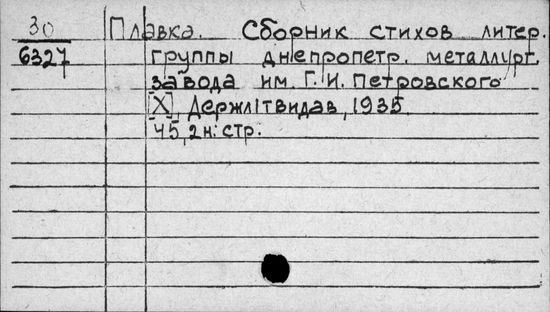 30 Плавка. Сборник стихов литер.
6327 группы днепропетр. металлург.
завода им. Г. И. Петровского
[X], Держлітвидав, 1935.
45, 2 н. стр.